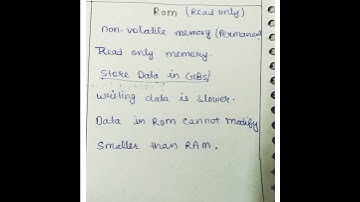 Rom (Read only)
non-volatile memory (Permanent
Read only memory.
Store Data in GBS/
writing data is slower.
Data in Rom cannot modify
Smaller than RAM.